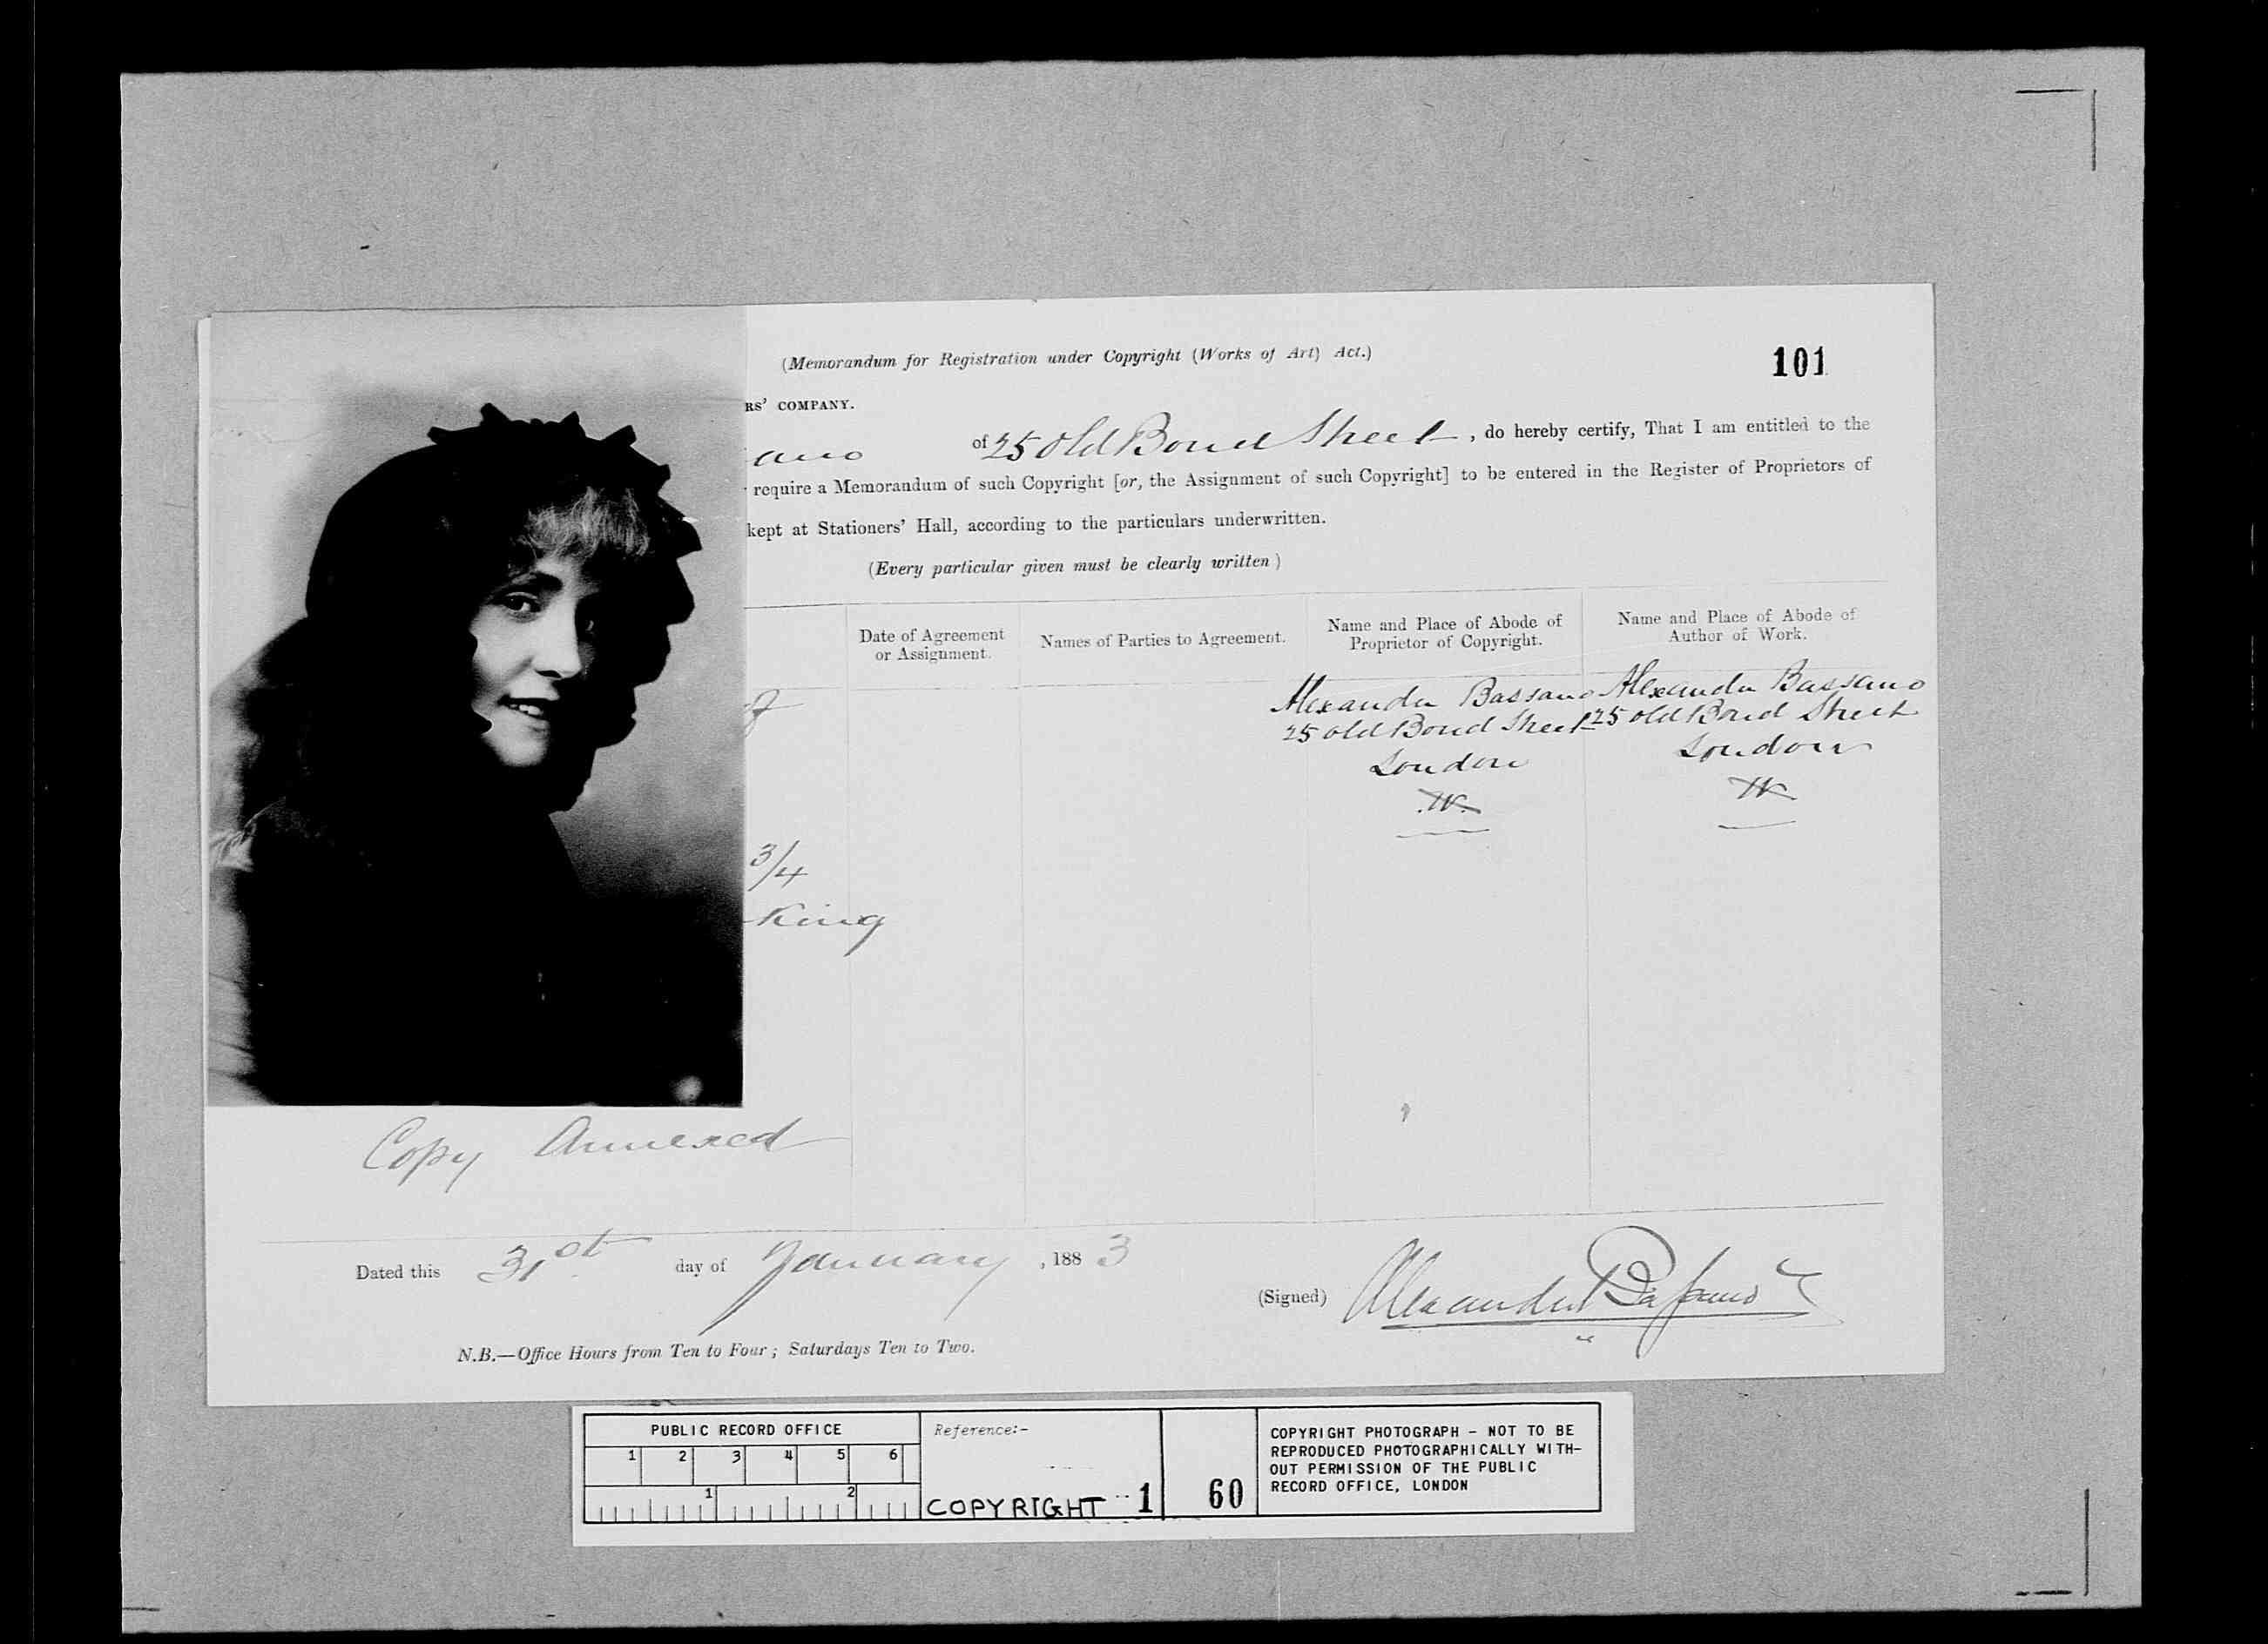 (Memorandum for Registration under Copyright (Works of Art) Act.)
101
RS' COMPANY.
ano of 25 Old Bond Street, do hereby certify, That I am entitled to the
require a Memorandum of such Copyright [or, the Assignment of such Copyright] to be entered in the Register of Proprietors of
kept at Stationers' Hall, according to the particulars underwritten.
(Every particular given must be clearly written)
Date of Agreement
or Assignment.
Names of Parties to Agreement.
Name and Place of Abode of
Proprietor of Copyright.
Name and Place of Abode of
Author of Work.
of
3/4
King
Alexander Bassano
25 Old Bond Street
London
W.
Alexander Bassano
25 Old Bond Street
London
W
Copy Annexed
Dated this 31st day of January, 1883
(Signed) Alexander Bassano
N.B.—Office Hours from Ten to Four; Saturdays Ten to Two.
PUBLIC RECORD OFFICE
1 2 3 4 5 6
1 2
Reference:-
COPYRIGHT 1
60
COPYRIGHT PHOTOGRAPH - NOT TO BE
REPRODUCED PHOTOGRAPHICALLY WITH-
OUT PERMISSION OF THE PUBLIC
RECORD OFFICE, LONDON